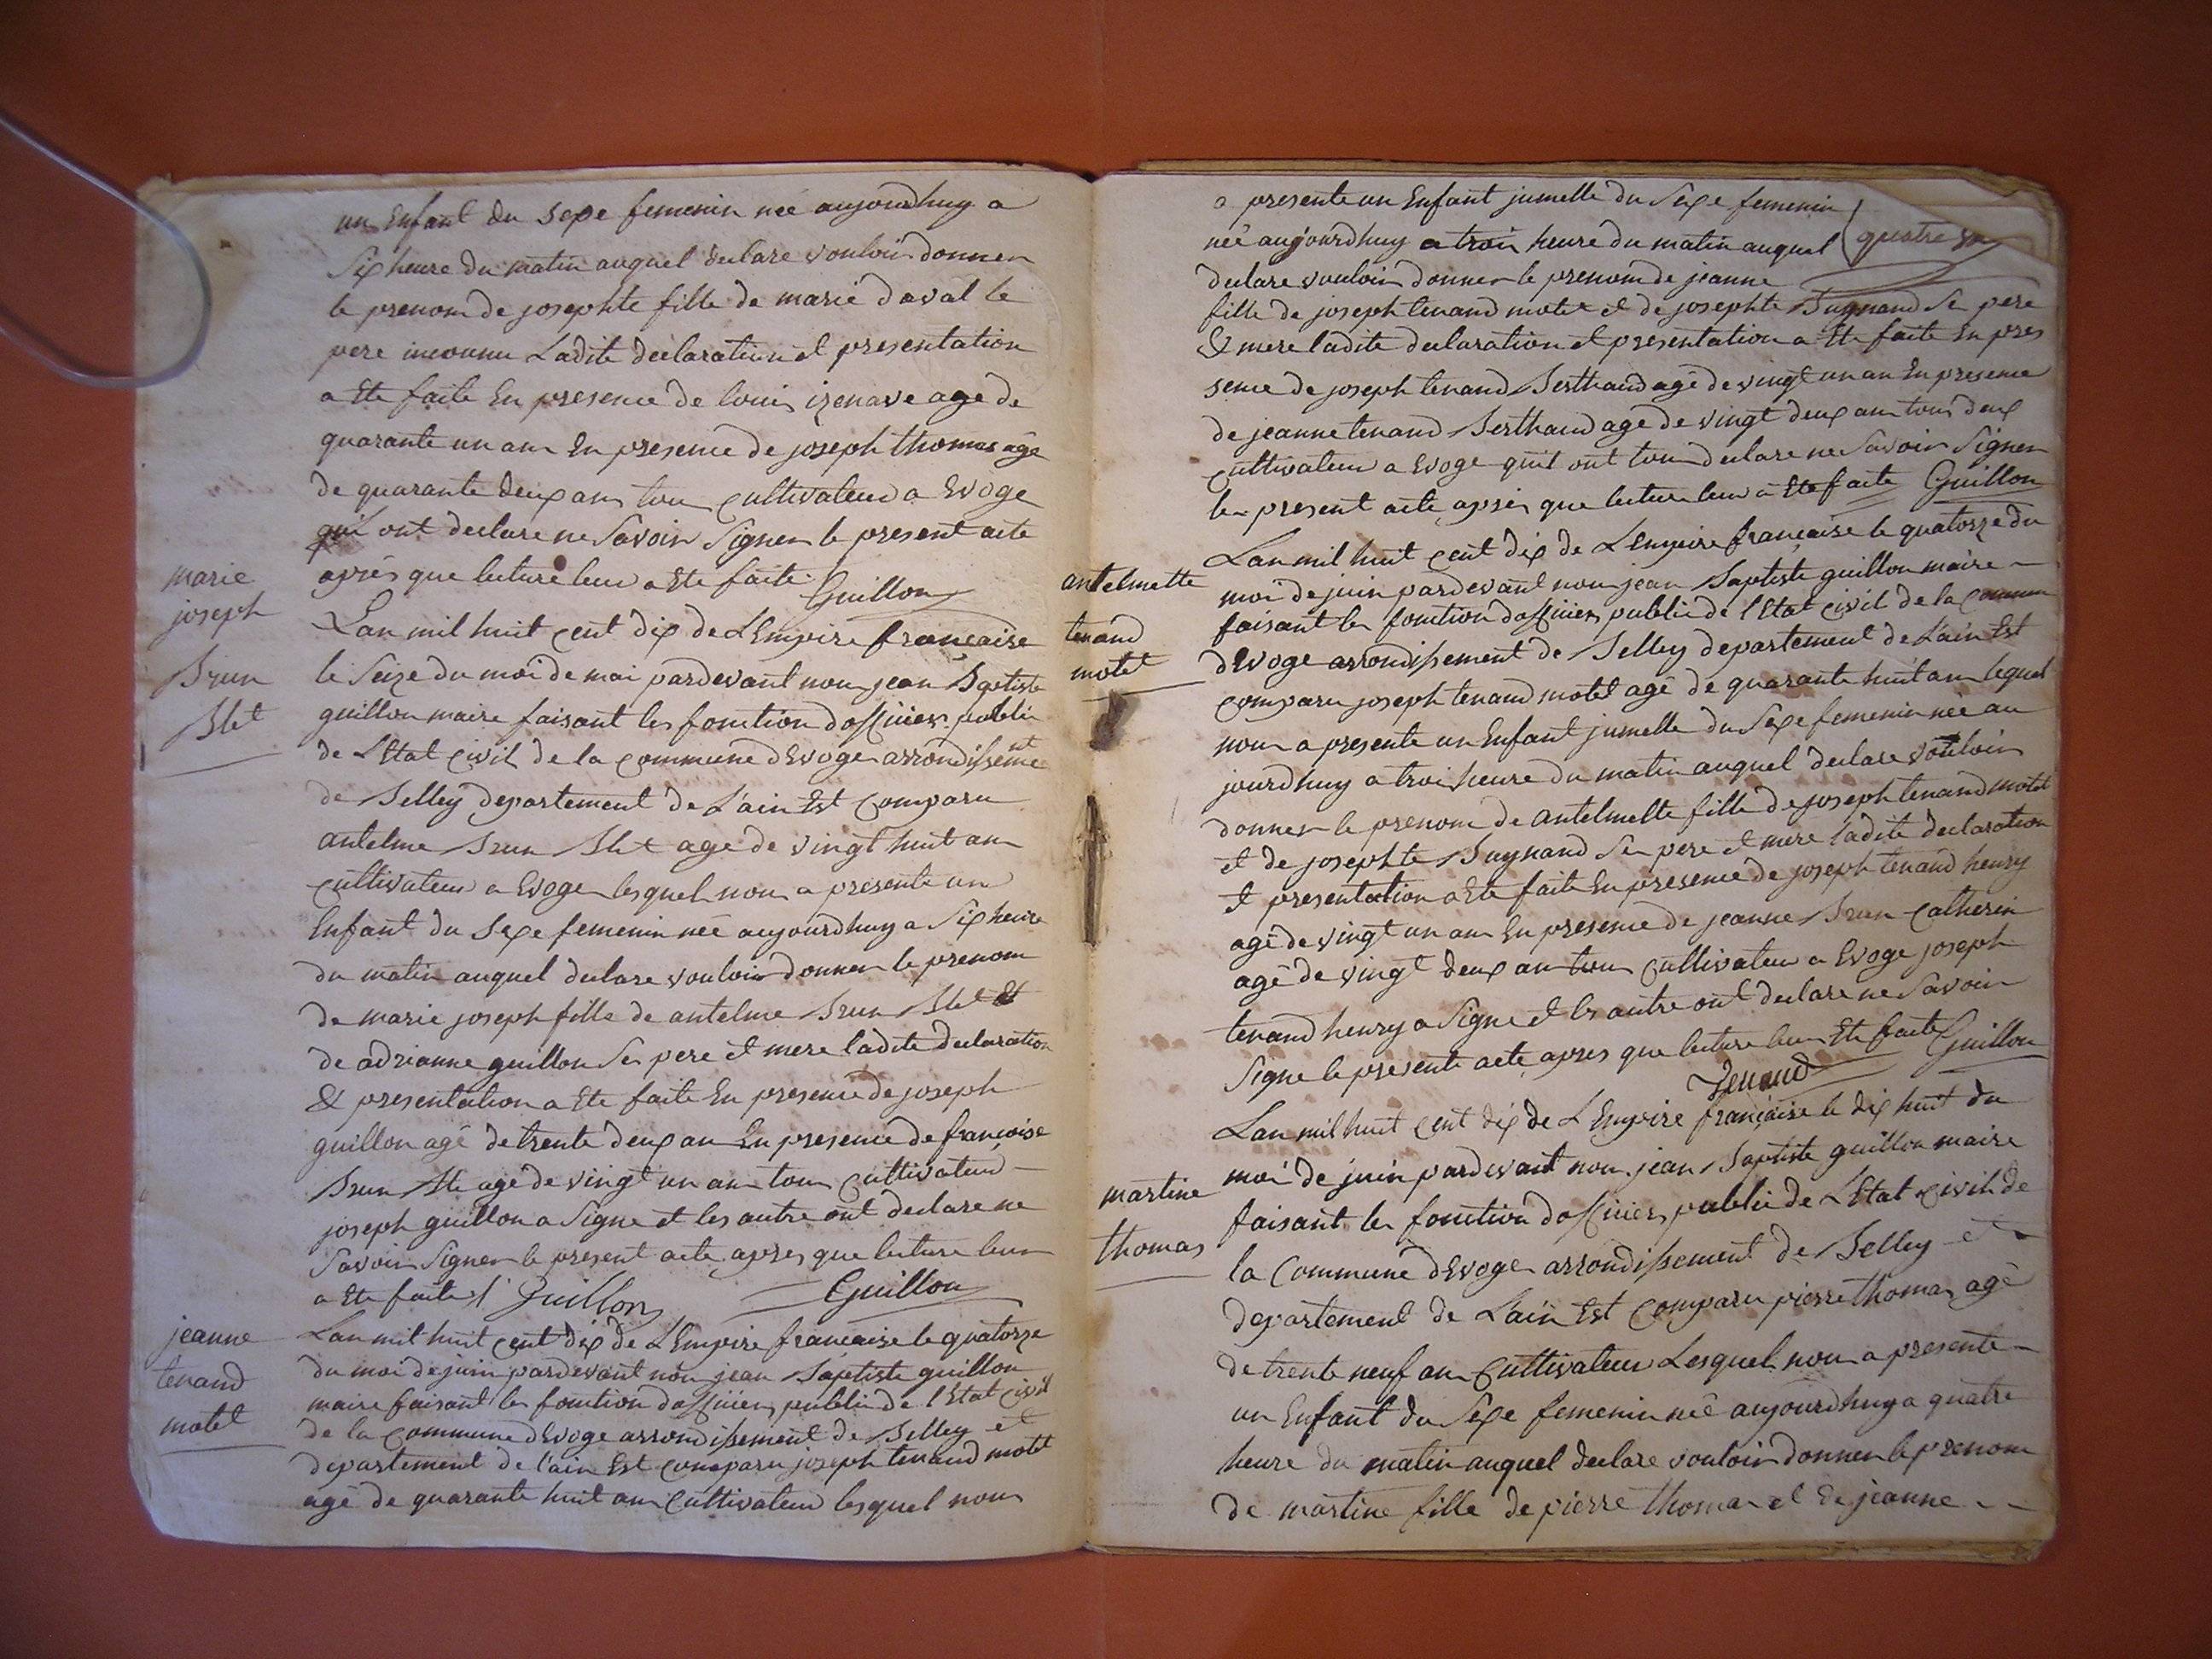 un Enfant du sexe femenin neé aujourdhuy a
Six heure du matin auquel declare vouloir donner
le prenom de josephte fille de marie daval le
pere inconnu Ladite declaration et presentation
a Ete faite En presence de louis izenave age de
quarante un ans En presence de joseph thomas age
de quarante deux ans tou cultivateur a Evoge
quil ont declare ne Savoir Signer le present acte
aprés que lecture leur a Ete faite Guillon
marie
joseph
Brun
Blet
Lan mil huit cent dix de LEmpire francaise
le Seize du moi de mai pardevant nou jean Baptiste
guillon maire faisant les fonction dofficier public
de LEtat civil de la commune dEvoge arrondissemnt
de Belley departement de Lain Est comparu
antelme Brun Blet age de vingt huit an
cultivateur a Evoge lesquel nou a presente un
Enfant du Sexe femenin neé aujourdhuy a Six heure
du matin auquel declare vouloir donner le prenom
de marie joseph fille de antelme Brun Blet Et
de adrianne guillon Se pere et mere ladite declaration
& presentation a Ete faite En presence de joseph
guillon agé de trente deux an En presence de francoise
Brun Ble agé de vingt un an tou cultivateur
joseph guillon a Signe et les autre ont declare ne
Savoir Signer le present acte apres que lecture leur
a Ete faite Guillon Guillon
jeanne
tenand
motet
Lan mil huit cent dix de LEmpire francaise le quatorze
du moi de juin pardevant nou jean Baptiste guillon
maire faisant les fonction dofficier public de lEtat civil
de la commune dEvoge arrondissement de Belley et
departement de l'ain Est comparu joseph tenand motet
agé de quarante huit an cultivateur lesquel nou
a presente un Enfant jumelle du Sexe femenin
neé aujourdhuy a troi heure du matin auquel quatre
declare vouloir donner le prenom de jeanne
fille de joseph tenand motet et de josephte Bugnand Se pere
& mere ladite declaration et presentation a Ete faite En pres
sence de joseph tenand Berthaud agé de vingt un an En presence
de jeanne tenand Berthaud age de vingt deux an tou deux
cultivateur a Evoge quil ont tou declare ne Savoir Signer
le present acte aprés que lecture leur a Ete faite Guillon
antelmette
tenand
motet
Lan mil huit cent dix de LEmpire francaise le quatorze du
moi de juin pardevant nou jean Baptiste guillon maire
faisant les fonction dofficier public de lEtat civil de la commun
dEvoge arrondissement de Belley departement de Lain Est
comparu joseph tenand motet agé de quarante huit an lequel
nou a presente un Enfant jumelle du Sexe femenin neé au
jourdhuy a troi heure du matin auquel declare vouloir
donner le prenom de antelmette fille de joseph tenand motet
et de josephte Bugnand Se pere et mere ladite declaration
et presentation a Ete faite En presence de joseph tenand henry
agé de vingt un an En presence de jeanne Brun catherin
agé de vingt deux an tou cultivateur a Evoge joseph
tenand henry a Signe et les autre ont declare ne Savoir
Signe le presente acte apres que lecture leur Ete faite Guillon
Tenand
martine
thomas
Lan mil huit cent dix de LEmpire française le dix huit du
moi de juin pardevant nou jean Baptiste guillon maire
faisant les fonction dofficier public de LEtat civil de
la Commune dEvoge arrondissement de Belley et
departement de Lain Est comparu pierre thomas agé
de trente neuf an cultivateur Lesquel nou a presente
un Enfant du Sexe femenin neé aujourdhuy a quatre
heure du matin auquel declare vouloir donner le prenom
de martine fille de pierre thomas et de jeanne